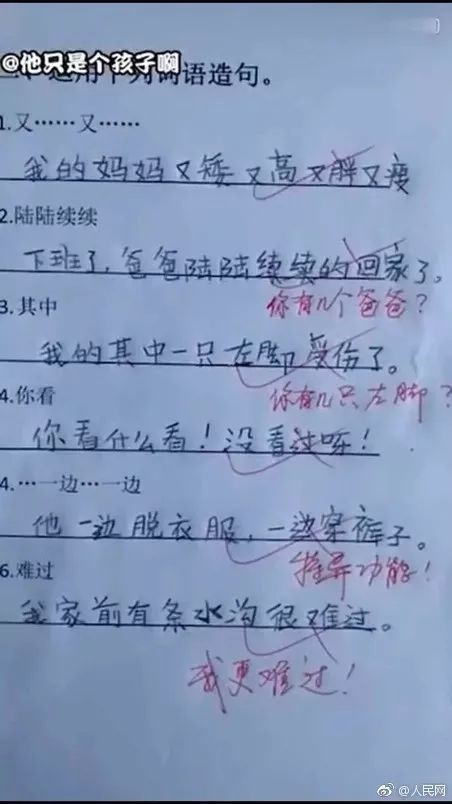 @他只是个孩子啊
二、运用下列词语造句。
1.又……又……
我的妈妈又矮又高又胖又瘦
2.陆陆续续
下班了,爸爸陆陆续续的回家了。
你有几个爸爸?
3.其中
我的其中一只左脚受伤了。
你有几只左脚?
4.你看
你看什么看!没看过呀!
4.…一边…一边
他一边脱衣服,一边穿裤子。
特异功能!
6.难过
我家前有条水沟很难过。
我更难过!
@人民网